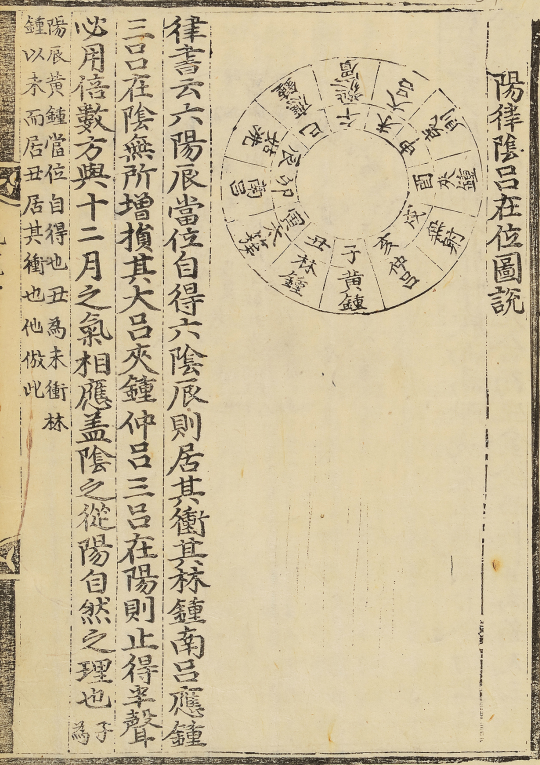 陽律陰呂在位圖說
子黃鍾
丑林鍾
寅太簇
卯南呂
辰姑洗
巳應鍾
午蕤賓
未大呂
申夷則
酉夾鍾
戌無射
亥仲呂
律書云六陽辰當位自得六陰辰則居其衝其林鍾南呂應鍾
三呂在陰無所增損其大呂夾鍾仲呂三呂在陽則止得半聲
必用倍數方與十二月之氣相應盖陰之從陽自然之理也子為
陽辰黃鍾當位自得也丑為未衝林
鍾以未而居丑居其衝也他倣此